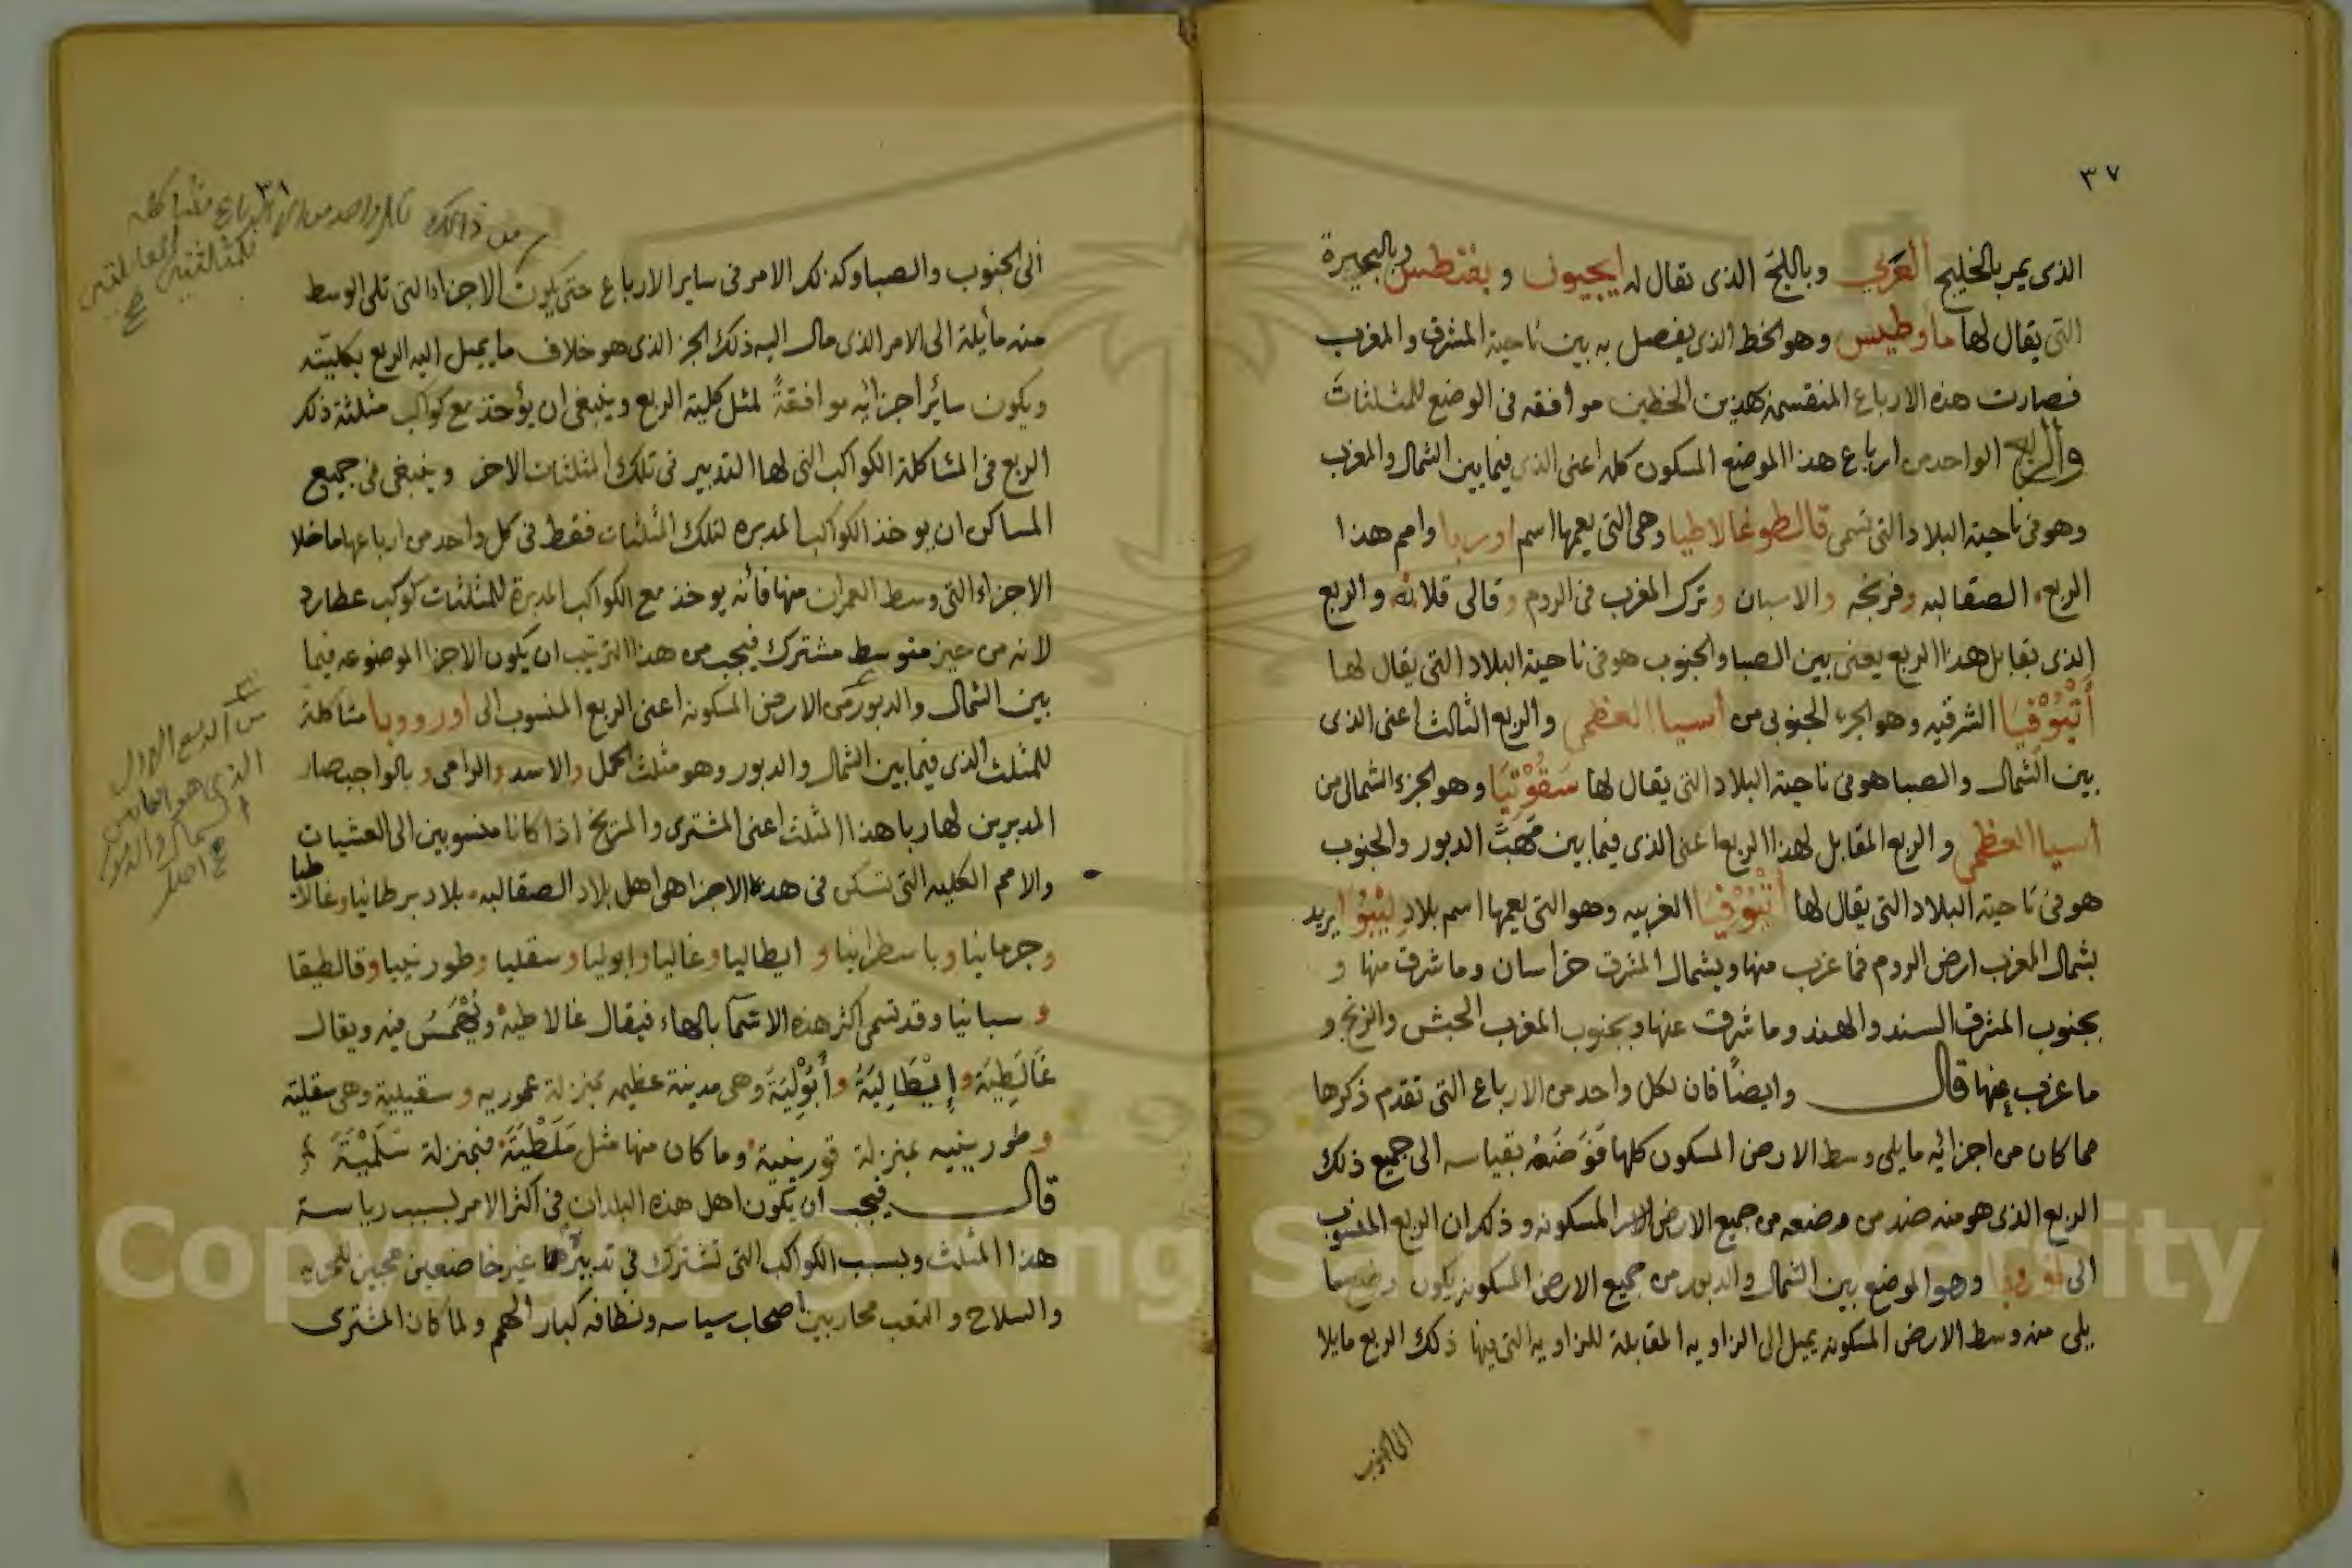 ٣٧
الذى يمر بالخليج العربي وباللج الذى يقال له ايجيون و بفنطس وبالبحيرة
التى يقال لها ماوطيس وهو الخط الذى يفصل به بين ناحية المشرق والمغرب
فصارت هذه الارباع المنقسمة بهذين الخطين موافقه فى الوضع للمثلثات
والربع الواحد من ارباع هذا الموضع المسكون كله اعنى الذى فيما بين الشمال والمغرب
وهو فى ناحية البلاد التى تسمى قالطوغالاطيا وهى التى يعمها اسم اوربا وامم هذا
الربع الصقالبه وفرنجه والاسبان وترك المغرب فى الروم و قالى قلا والربع
الذى يقابل هذا الربع يعنى بين الصبا والجنوب هو فى ناحية البلاد التى يقال لها
أَثْيُوْفِيَا الشرقيه وهو الجزء الجنوبى من اسيا العظمى والربع الثالث اعنى الذى
بين الشمال والصبا هو فى ناحية البلاد التى يقال لها سَقُوْثِيَا وهو الجزء الشمالى من
اسيا العظمى و الربع المقابل لهذا الربع اعنى الذى فيما بين مَهَبّ الدبور والجنوب
هو فى ناحية البلاد التى يقال لها أَثْيُوْفِيَا الغربيه وهو التى يعمها اسم بلاد لِيْبُوْا يريد
بشمال المغرب ارض الروم فما غرب منها وبشمال المشرق خراسان وما شرق منها و
بجنوب المشرق السند والهند وما شرق عنها وبجنوب المغرب الحبش والزنج و
ما غرب عنها قال وايضًا فان لكل واحد من الارباع التى تقدم ذكرها
مما كان من اجزائه ما يلى وسط الارض المسكون كلها فَوَضْعُهُ بقياسه الى جميع ذلك
الربع الذى هو منه ضد من وضعه من جميع الارض المسكونه و ذلك ان الربع المنسوب
الى اوروبا وهو الموضع بين الشمال والدبور من جميع الارض المسكونه يكون وضع ما
يلى منه وسط الارض المسكونه يميل الى الزاويه المقابلة للزاويه التى فيها ذلك الربع مايلا
الى الجنوب
الى الجنوب والصبا وكذلك الامر فى ساير الارباع حتى يكون الاجزاء التى تلى الوسط
منه مأيلة الى الامر الذى مال اليه ذلك الجز الذى هو خلاف ما يميل اليه الربع بكليته
ويكون سائر اجزائه موافقةً لمثل كلية الربع وينبغى ان يؤخذ مع كواكب مثلثة ذلك
الربع فى المشاكلة الكواكب التى لها التدبير فى تلك المثلثات الاخر وينبغى فى جميع
المساكن ان يوخذ الكواكب المدبره لتلك المثلثات فقط فى كل واحد من ارباعها ما خلا
الاجزاء التى وسط العمران منها فأنه يوخذ مع الكواكب المدبرة للمثلثات كوكب عطارد
لانه من حيز متوسط مشترك فيجب من هذا الترتيب ان يكون الاجزا الموضوعه فيما
بين الشمال والدبور من الارض المسكونه اعنى الربع المنسوب الى اورووبا مشاكلة
للمثلث الذى فيما بين الشمال والدبور وهو مثلث الحمل والاسد والرامى و بالواجب صار
المدبرين لها ربا هذا المثلث اعنى المشترى والمريخ اذا كانا منسوبين الى العشيات
والامم الكليه التى تسكن فى هذه الاجزا هى اهل بلاد الصقالبه بلاد برطانيا وغالاطيا
وجرمانيا وباسطرانيا و ايطاليا وغاليا وابوليا وسقليا وطورنيبا وقالطيقا
و سبانيا وقد تسمى اكثر هذه الاسمآ بالهاء فيقال غالاطيه ويُهْمَسُ فيه ويقال
غَالَطِيَة و إِيْطَالِيَةُ و أَبُوْلِيَةَ وهى مدينة عظيمه بمنزلة عموريه و سقيلية وهى سقلية
وطورينيه بمنزلة قورينية وما كان منها مثل مَلَطْيَةَ فبمنزلة سَلَمْيَةَ
قال فيجب ان يكون اهل هذه البلدان فى اكثر الامر بسبب رياسة
هذا المثلث وبسبب الكواكب التى تشترك فى تدبيرها غير خاضعين محبين للحريه
والسلاح و التعب محاربين اصحاب سياسه ونظافه كبار الهمم ولما كان المشترى
من الربع الاول
الذى هو
الشمال والدبور